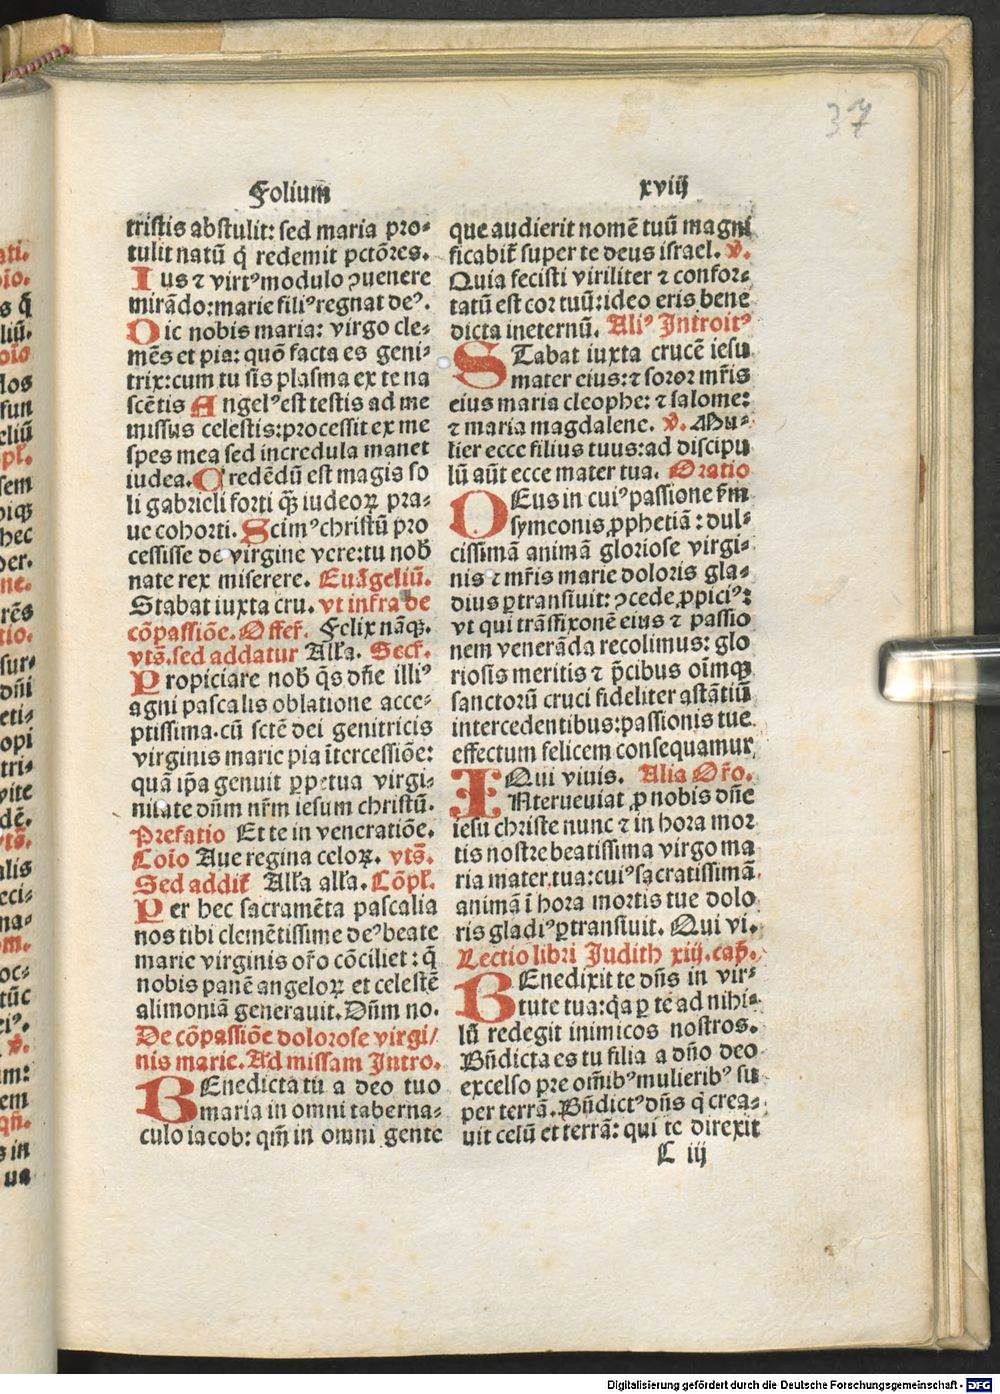 37
Folium̅ xviij
tristis abstulit: sed maria pro⸗
tulit natū q̄ redemit pctōres.
Ius ⁊ virtꝰ modulo ꝯuenere
mirādo: marie filiꝰ regnat deꝰ.
Dic nobis maria: virgo cle⸗
mēs et pia: quō facta es geni⸗
trix: cum tu sis plasma ex te na
scētis Angelꝰ est testis ad me
missus celestis: processit ex me
spes mea sed incredula manet
iudea. Credēdū est magis so
li gabrieli forti q̄ꝫ iudeoꝝ pra⸗
ue cohorti. Scimꝰ christū pro
cessisse de virgine vere: tu nob̄
nate rex miserere. Euāgeliū.
Stabat iuxta cru. vt infra de
cōpassiōe. Offeř. Felix nāqꝫ.
vts̄. sed addatur Alła. Secř.
Propiciare nob̄ q̄s dn̄e illiꝰ
agni pascalis oblatione acce⸗
ptissima. cū sctē dei genitricis
virginis marie pia ītercessiōe:
quā ip̄a genuit ꝑpetua virgi⸗
nitate dn̄m nr̄m iesum christū.
Prefatio Et te in veneratiōe.
Coīo Aue regina celoꝝ. vts̄.
Sed addiť Alła alła. Cōpł.
Per hec sacramēta pascalia
nos tibi clemētissime deꝰ beate
marie virginis or̄o cōciliet: q̄
nobis panē angeloꝝ et celestē
alimoniā generauit. Dn̄m no.
De cōpassiōe dolorose virgi/
nis marie. Ad missam Intro.
BEnedicta tu a deo tuo
maria in omni taberna⸗
culo iacob: qm̄ in omni gente
que audierit nomē tuū magni
ficabiť super te deus israel. ℣.
Quia fecisti viriliter ⁊ confor⸗
tatū est cor tuū: ideo eris bene
dicta ineternū. Aliꝰ Introitꝰ
STabat iuxta crucē iesu
mater eius: ⁊ soror mr̄is
eius maria cleophe: ⁊ salome:
⁊ maria magdalene. ℣. Mu⸗
lier ecce filius tuus: ad discipu
lū aūt ecce mater tua. Oratio
DEus in cuiꝰ passione ẜm
symeonis ꝓphetiā: dul⸗
cissimā animā gloriose virgi⸗
nis ⁊ mr̄is marie doloris gla⸗
dius ꝑtransiuit: ꝯcede ꝓpiciꝰ:
vt qui trāsfixonē eius ⁊ passio
nem venerāda recolimus: glo
riosis meritis ⁊ p̄cibus oīmqꝫ
sanctorū cruci fideliter astātiū
intercedentibus: passionis tue
effectum felicem consequamur
Qui viuis. Alia Or̄o.
INterueuiat ꝓ nobis dn̄e
iesu christe nunc ⁊ in hora mor
tis nostre beatissima virgo ma
ria mater. tua: cuiꝰ sacratissimā
animā ī hora mortis tue dolo
ris gladiꝰ ꝑtransiuit. Qui vi.
Lectio libri Judith xiij. cap̄.
BEnedixit te dn̄s in vir⸗
tute tua: q̄a ꝑ te ad nihi⸗
lū redegit inimicos nostros.
Bn̄dicta es tu filia a dn̄o deo
excelso pre om̄ibꝰ mulieribꝰ su
per terrā. Bn̄dictꝰ dn̄s q̄ crea⸗
uit celū et terrā: qui te direxit
C iij
Digitalisierung gefördert durch die Deutsche Forschungsgemeinschaft - DFG